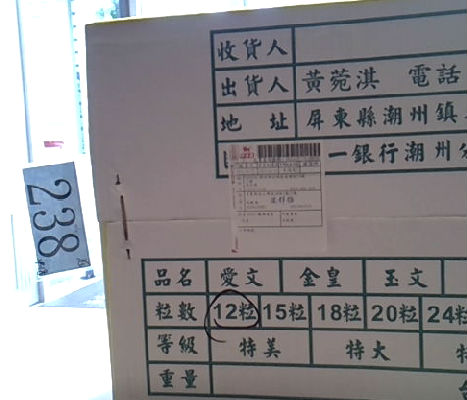 收貨人
出貨人 黃菀淇 電話
地址 屏東縣潮州鎮
一銀行潮州分
238
品名 愛文 金皇 玉文
粒數 12粒 15粒 18粒 20粒 24粒
等級 特美 特大 特
重量